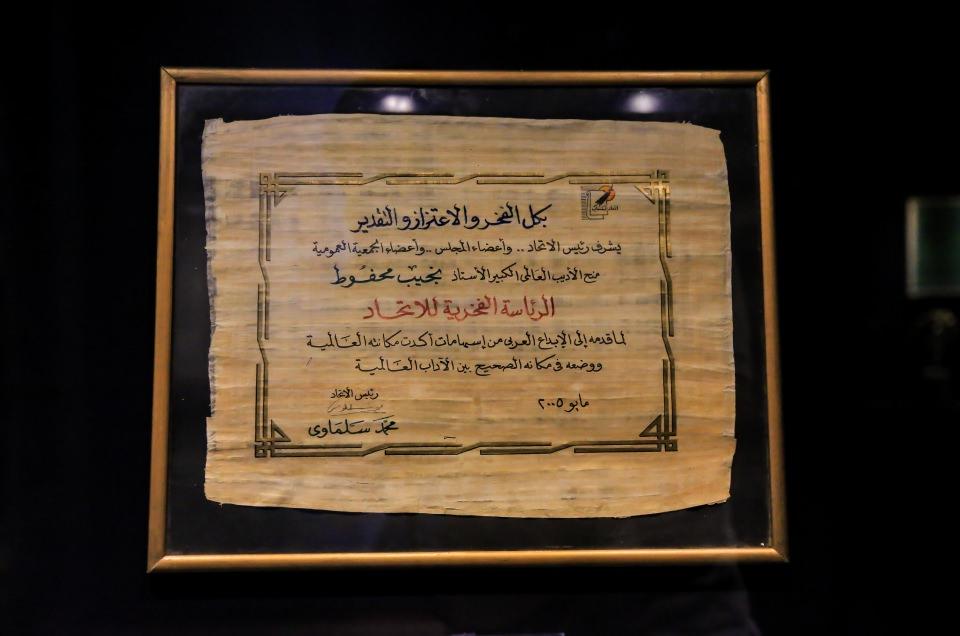 بكل الفخر والاعتزاز والتقدير
يشرف رئيس الاتحاد .. وأعضاء المجلس .. وأعضاء الجمعية العمومية
منح الأديب العالمى الكبير الأستاذ نجيب محفوظ
الرئاسة الفخرية للاتحاد
لما قدمه إلى الإبداع العربى من إسهامات أكدت مكانته العالمية
ووضعه فى مكانه الصحيح بين الآداب العالمية
مايو ٢٠٠٥
رئيس الاتحاد
محمد سلماوى